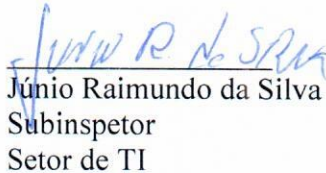 Júnio R da Silva
Júnio Raimundo da Silva
Subinspetor
Setor de TI